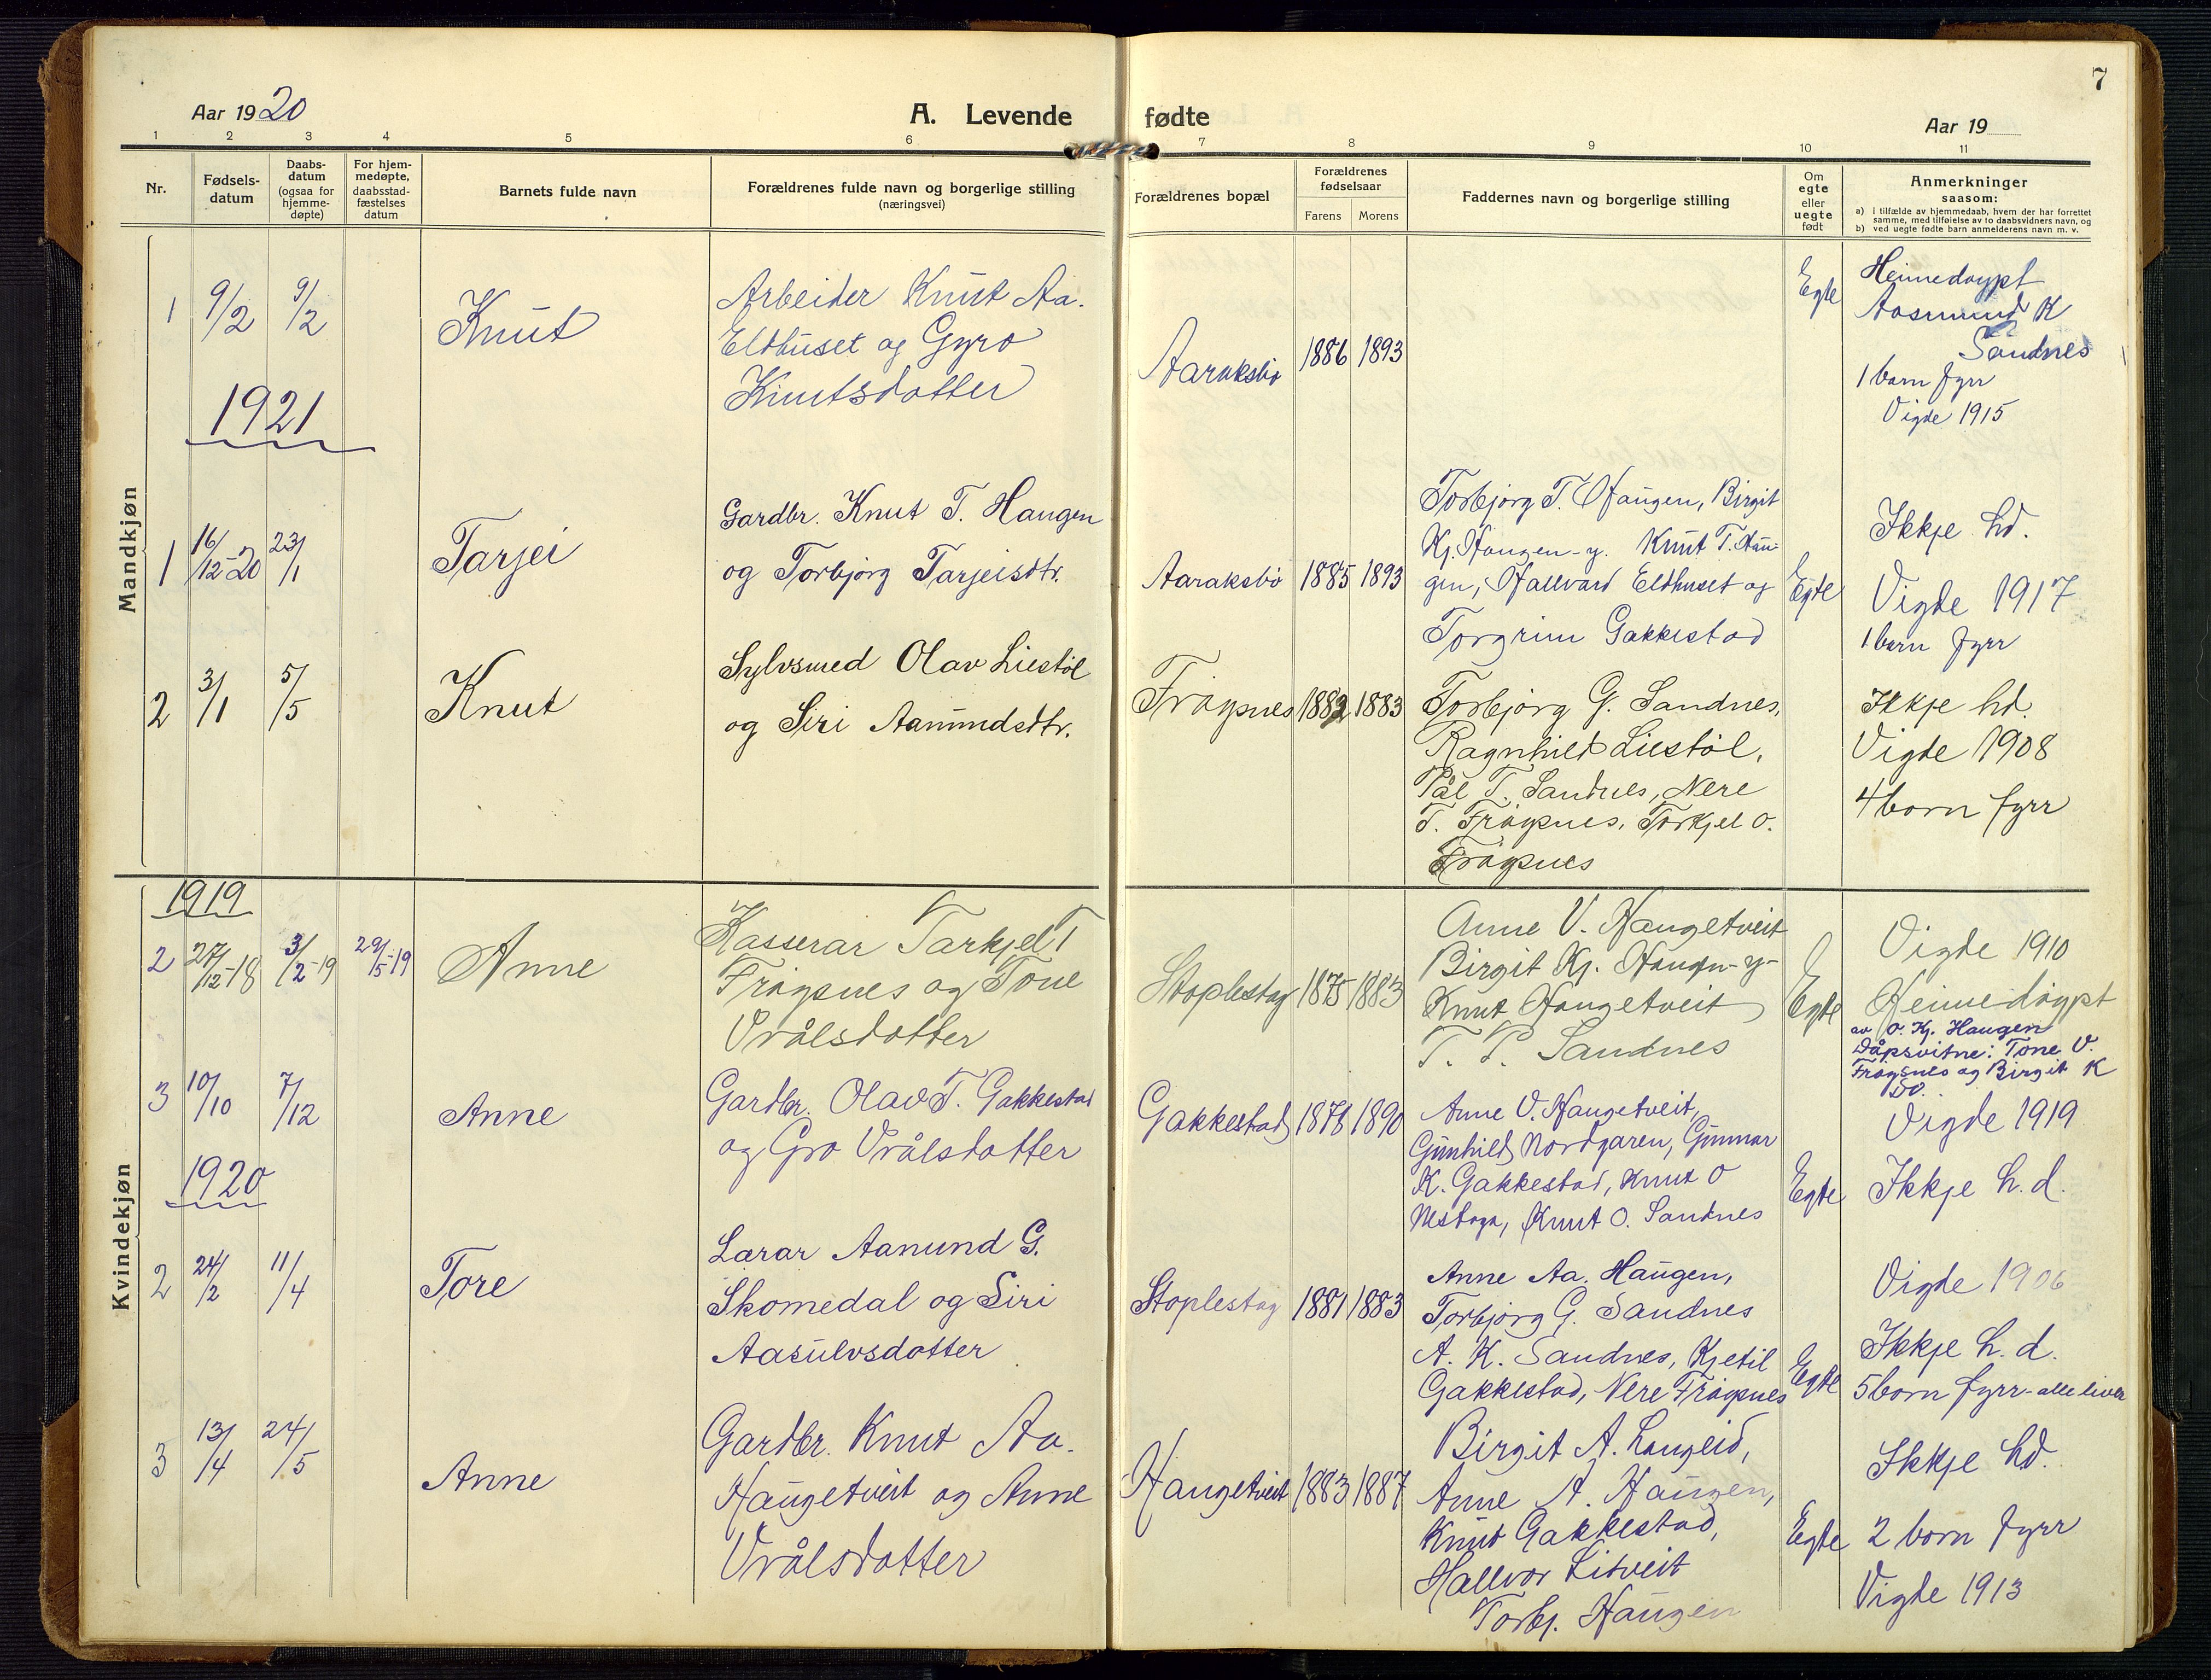 7
Aar 1920
A. Levende
fødte
Aar 19
1 2 3 4 5 6 7 8 9 10 11
Nr.
Fødsels-
datum
Daabs-
datum
(ogsaa for
hjemme-
døpte)
For hjem-
medøpte,
daabsstad-
fæstelses
datum
Barnets fulde navn
Forældrenes fulde navn og borgerlige stilling
(næringsvei)
Forældrenes bopæl
Forældrenes
fødselsaar
Farens Morens
Faddernes navn og borgerlige stilling
Om
egte
eller
uegte
født
Anmerkninger
saasom:
a) i tilfælde av hjemmedaab, hvem der har forrettet
samme, med tilføielse av to daabsvidners navn, og
b) ved uegte fødte barn anmelderens navn m. v.
Mandkjøn
1 9/2 9/2
Knut
Arbeider Knut Aa.
Eldhuset og Gyro
Knutsdotter
Aaraksbø
1886 1893
Egte
Heimedøypt
Aasmund K
Sandnes
1 born fyrr
Vigde 1915
1921
1 16/12-20 23/1
Tarjei
Gardbr. Knut T. Haugen
og Torbjørg Tarjeisdtr.
Aaraksbø
1885 1893
Torbjørg T. Haugen, Birgit
Kj. Haugen-y. Knut T. Hau-
gen, Hallvard Eldhuset og
Torgrim Gakkestad
Egte
Ikkje hd.
Vigde 1917
1 born fyrr
2 3/1 5/5
Knut
Sylvsmed Olav Liestøl
og Siri Aanundsdtr.
Frøysnes
1882 1883
Torbjørg G. Sandnes,
Ragnhild Liestøl,
Pål T. Sandnes, Nere
T. Frøysnes, Torkjel O.
Frøysnes
Ikkje hd.
Vigde 1908
4 born fyrr
Kvindekjøn
1919
2 27/12-18 3/2-19 29/5-19
Anne
Kasserar Tarkjel T
Frøysnes og Tone
Vrålsdotter
Stoplestøg
1875 1883
Anne V. Haugetveit
Birgit Kj. Haugen-y-
Knut Haugetveit
T. P. Sandnes
Egte
Vigde 1910
Heimedøypt
av O. Kj. Haugen
Dåpsvitne: Tone V.
Frøysnes og Birgit K
Do.
3 10/10 7/12
Anne
Gardbr. Olav T. Gakkestad
og Gro Vrålsdotter
Gakkestad
1878 1890
Anne V. Haugetveit,
Gunhild Nordgaren, Gunnar
K. Gakkestad, Knut O
Nestøga, Knut O. Sandnes
Egte
Vigde 1919
Ikkje h.d.
1920
2 24/2 11/4
Tore
Lærar Aanund G.
Skomedal og Siri
Aasulvsdotter
Stoplestøg
1881 1883
Anne Aa. Haugen,
Torbjørg G. Sandnes
A. K. Sandnes, Kjetil
Gakkestad, Nere Frøysnes
Egte
Vigde 1906
Ikkje h.d.
5 born fyrr - alle liver
3 13/4 24/5
Anne
Gardbr. Knut Aa.
Haugetveit og Anne
Vrålsdotter
Haugetveit
1883 1887
Birgit A. Langeid,
Anne A. Haugen,
Knut Gakkestad,
Hallvor Litveit
Torbj. Haugen
Egte
Ikkje hd.
2 born fyrr
Vigde 1913